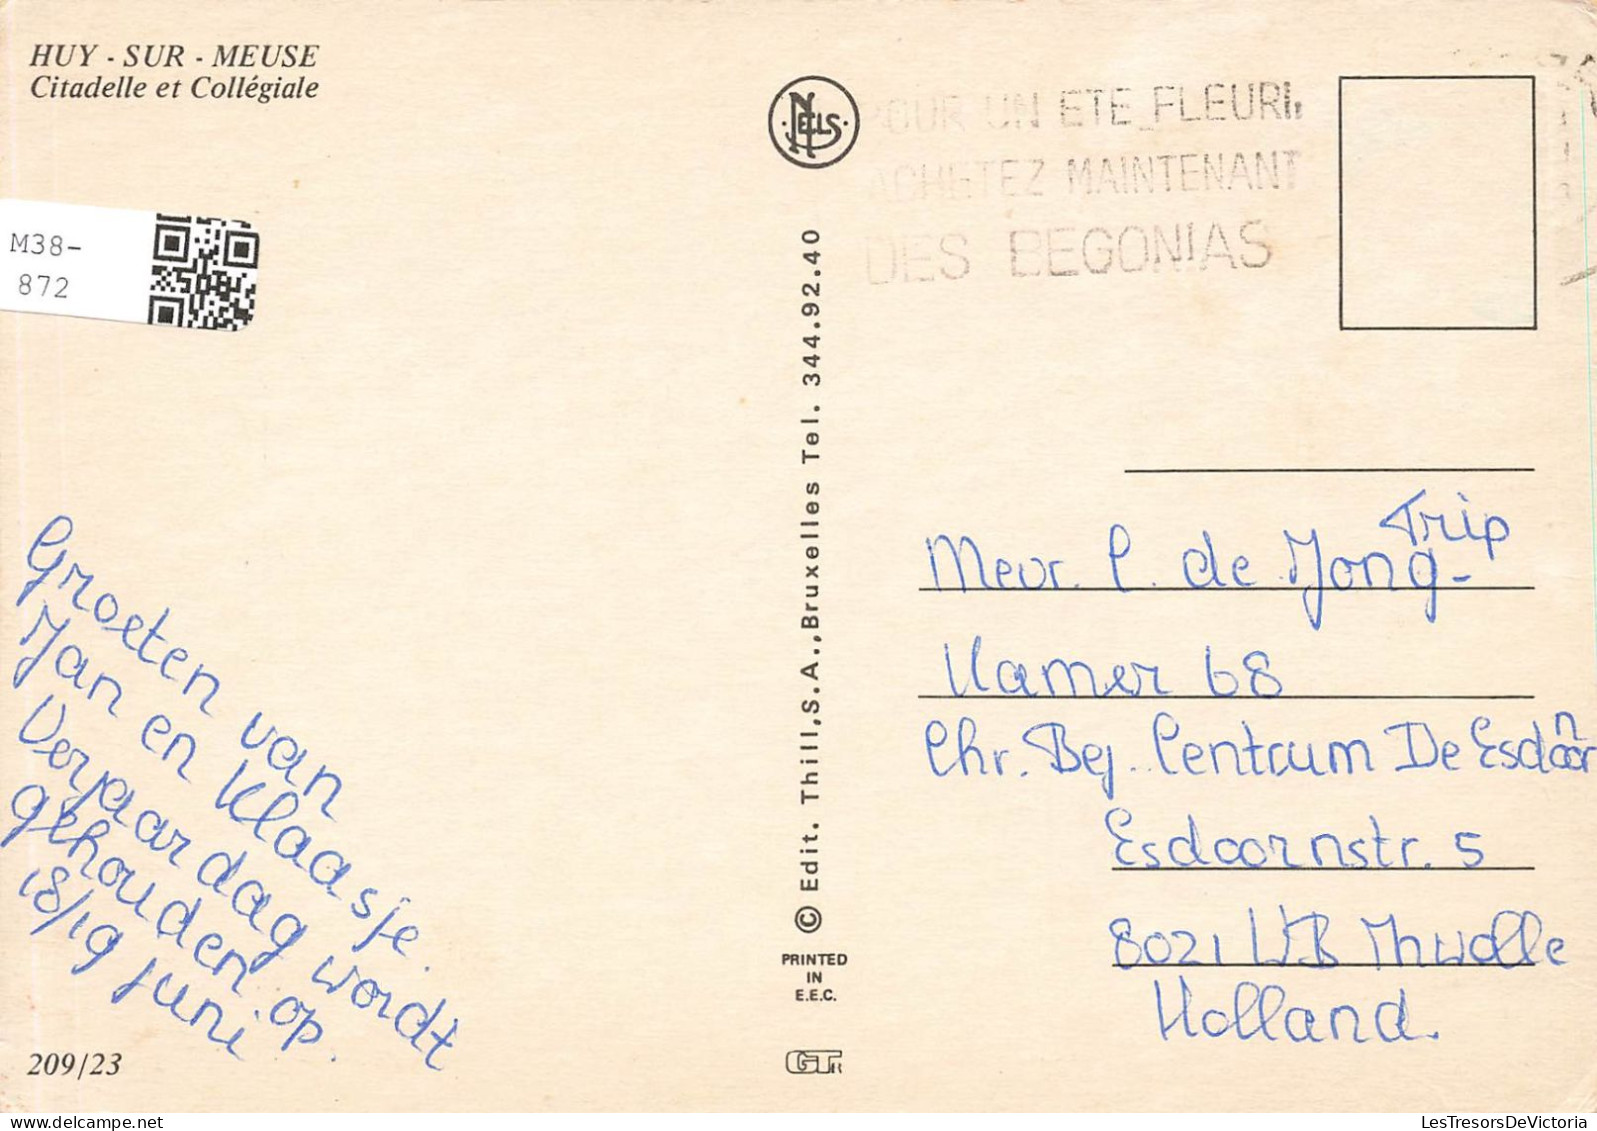 HUY - SUR - MEUSE
Citadelle et Collégiale
M38-
872
NELS
POUR UN ETE FLEURI,
ACHETEZ MAINTENANT
DES BEGONIAS
© Edit. Thill,S.A.,Bruxelles Tel. 344.92.40
PRINTED
IN
E.E.C.
Groeten van
Jan en Klaasje.
Verjaardag wordt
gehouden op
18/19 juni
209/23
Mevr. C. de Jong-Trip
Kamer 68
Chr. Bej. Centrum De Esdoorn
Esdoornstr. 5
8021 WB Zwolle
Holland.
LesTresorsDeVictoria